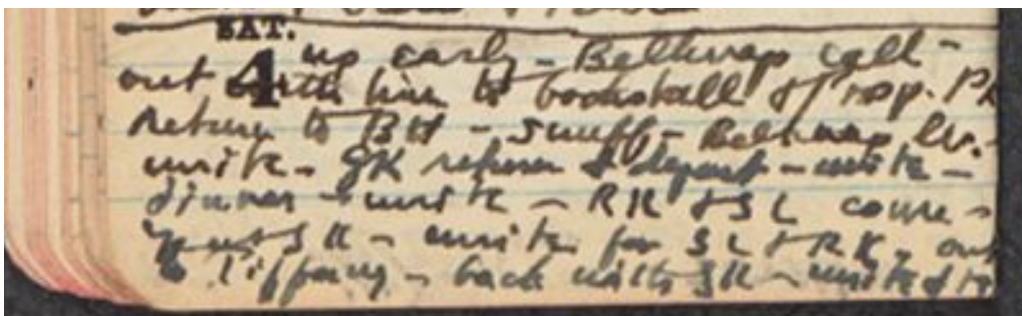 SAT.
4 up early - Belknap call -
out with him to bookstall & Prop. Pk
return to BH - snuff - Belknap lv. -
write - GK return & depart - write -
dinner - write - RK & SL come -
GK - write for SL & RK - out
to Tiffany - back with GK - write & to